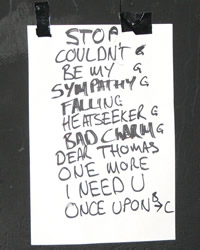 STOP
COULDN'T G
BE MY G
SYMPATHY G
FALLING
HEATSEEKER G
BAD CHARM G
DEAR THOMAS
ONE MORE
I NEED U
ONCE UPON G→C